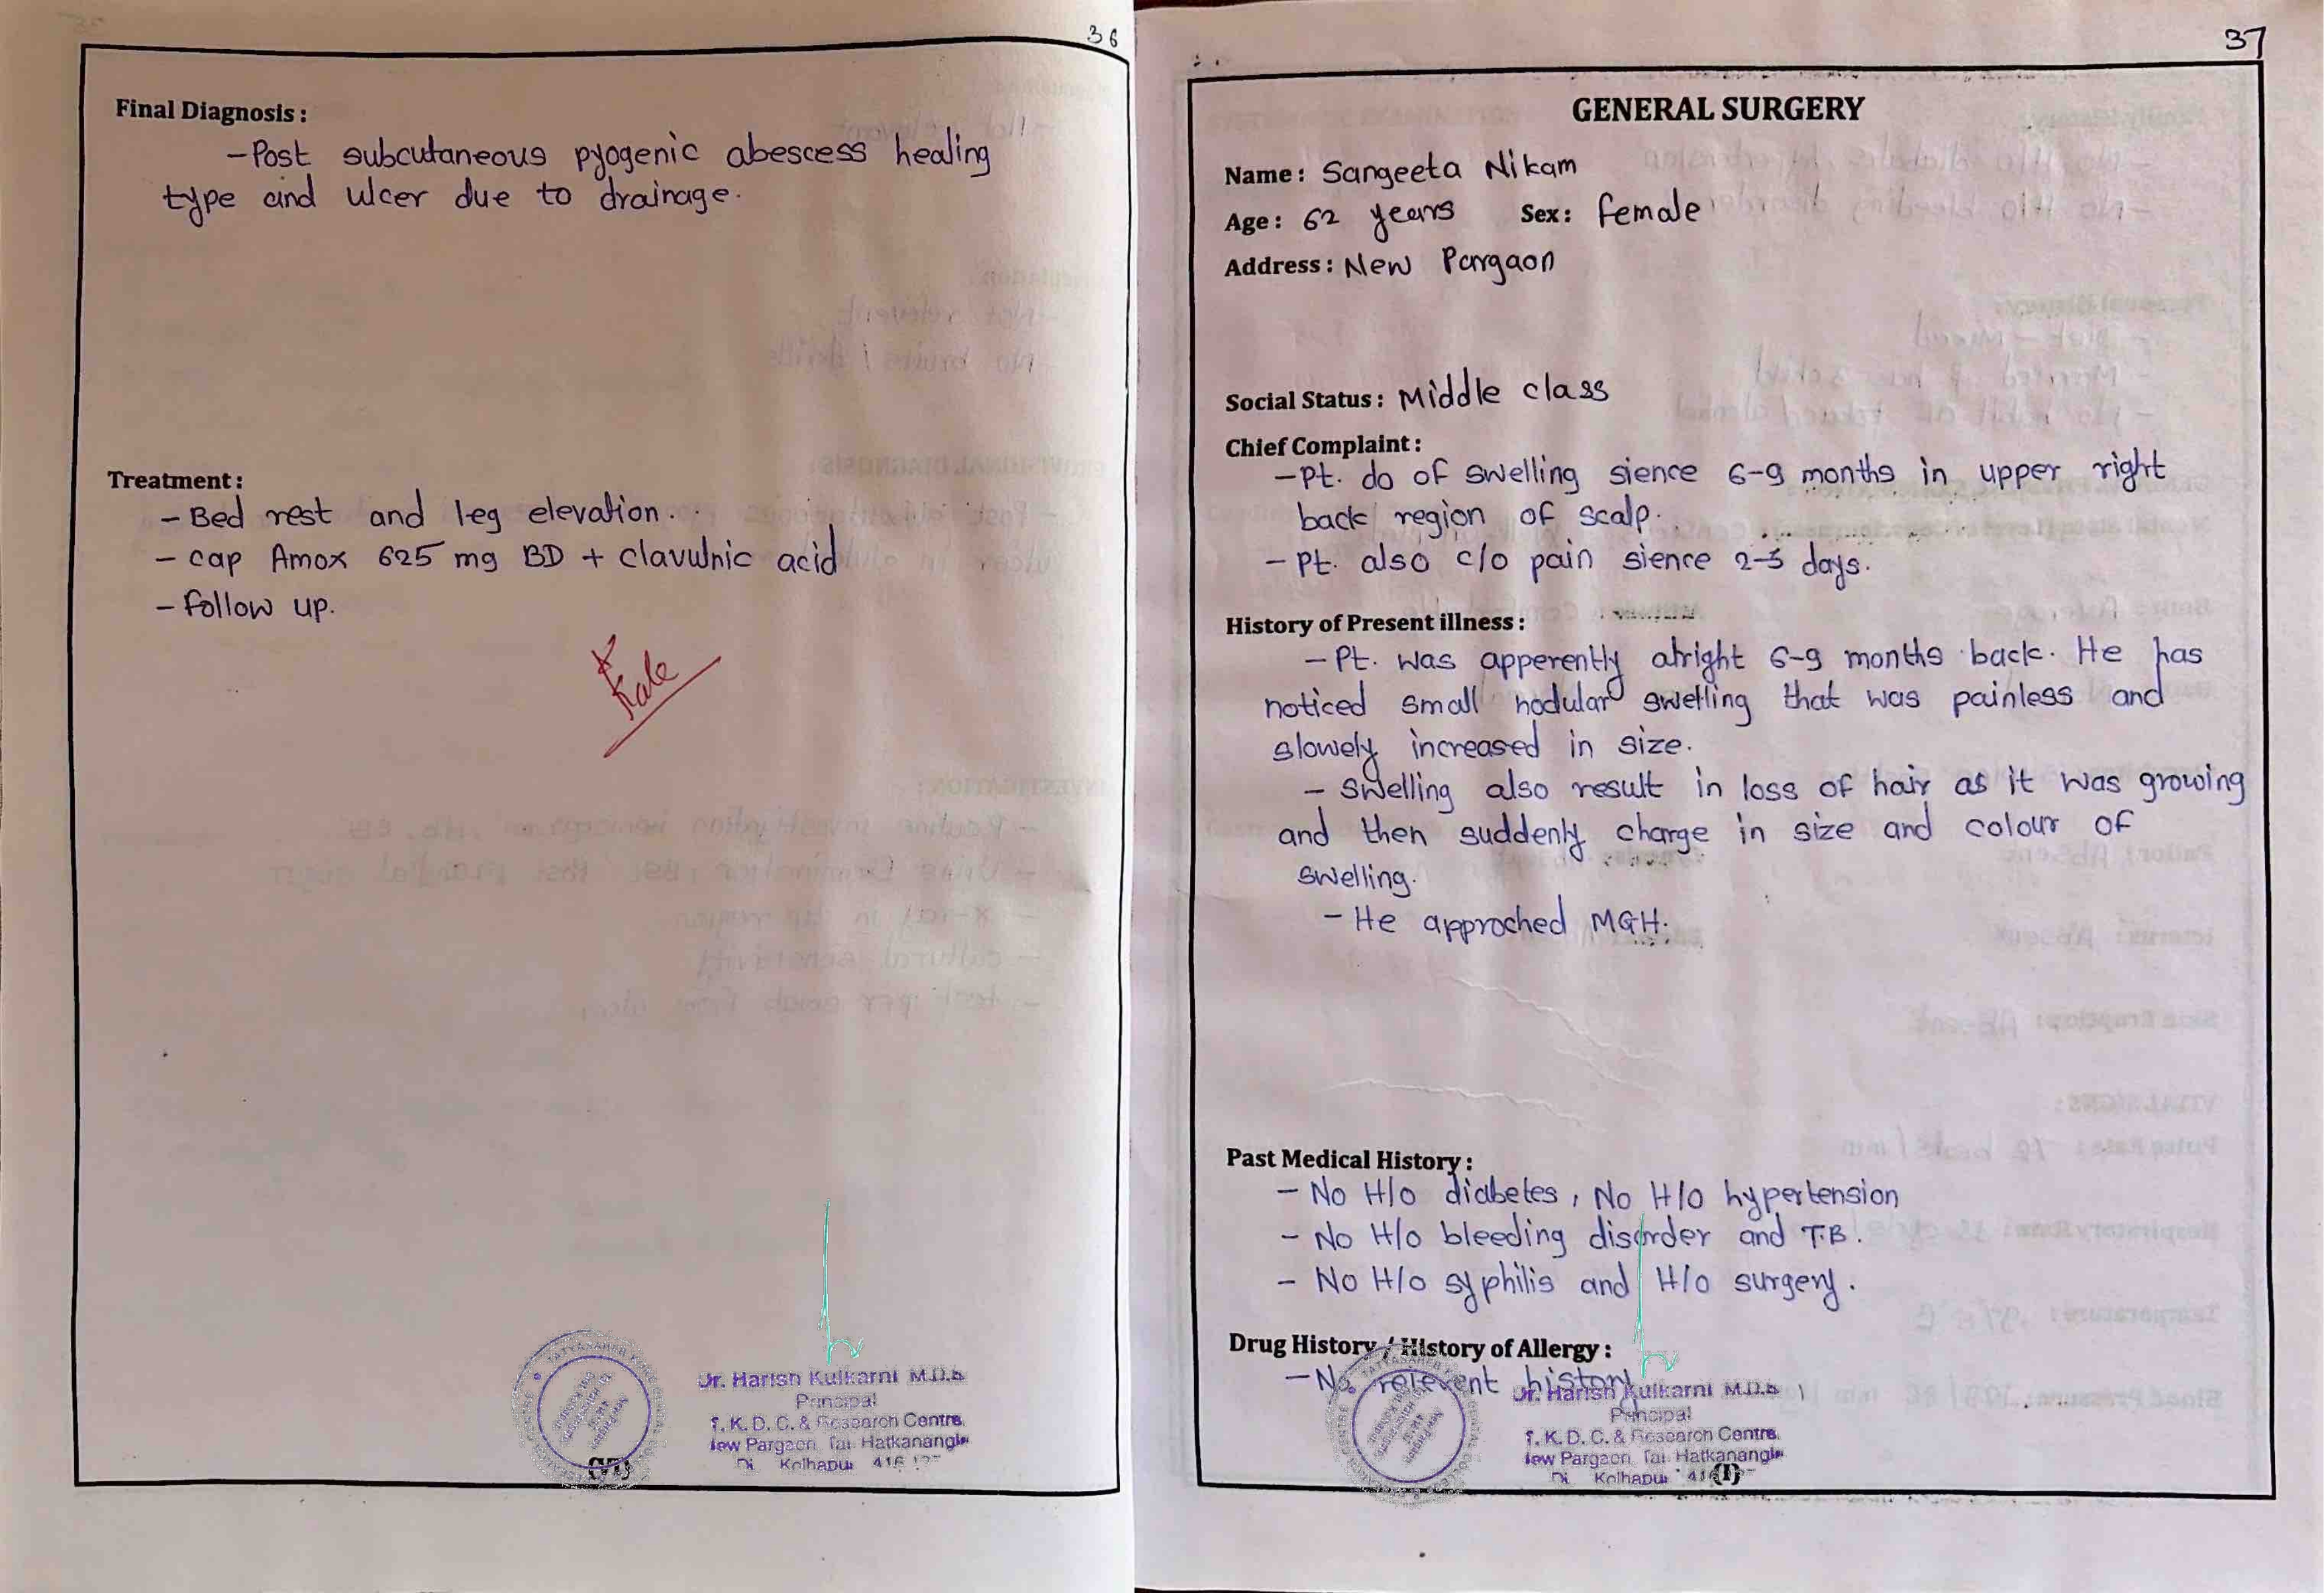 36
Final Diagnosis :
- Post subcutaneous pyogenic abescess healing
type and ulcer due to drainage.
Treatment :
- Bed rest and leg elevation.
- cap Amox 625 mg BD + clavulnic acid
- follow up.
Kale
Dr. Harish Kulkarni M.D.S
Principal
T. K. D. C. & Research Centre,
New Pargaon Tal. Hatkanangle
Di Kolhapur 416
37
GENERAL SURGERY
Name : Sangeeta Nikam
Age : 62 years Sex : female
Address : New Pargaon
Social Status : Middle class
Chief Complaint :
- Pt. do of swelling sience 6-9 months in upper right
back region of scalp.
- Pt. also c/o pain sience 2-3 days.
History of Present illness :
- Pt. was apperently alright 6-9 months back. He has
noticed small nodular swelling that was painless and
slowely increased in size.
- Swelling also result in loss of hair as it was growing
and then suddenly charge in size and colour of
swelling.
- He approched MGH.
Past Medical History :
- No H/o diabetes, No H/o hypertension
- No H/o bleeding disorder and T.B.
- No H/o syphilis and H/o surgery.
Drug History / History of Allergy :
- No relevent history
Dr. Harish Kulkarni M.D.S
Principal
T. K. D. C. & Research Centre,
New Pargaon Tal. Hatkanangle
Di Kolhapur 416
(1)